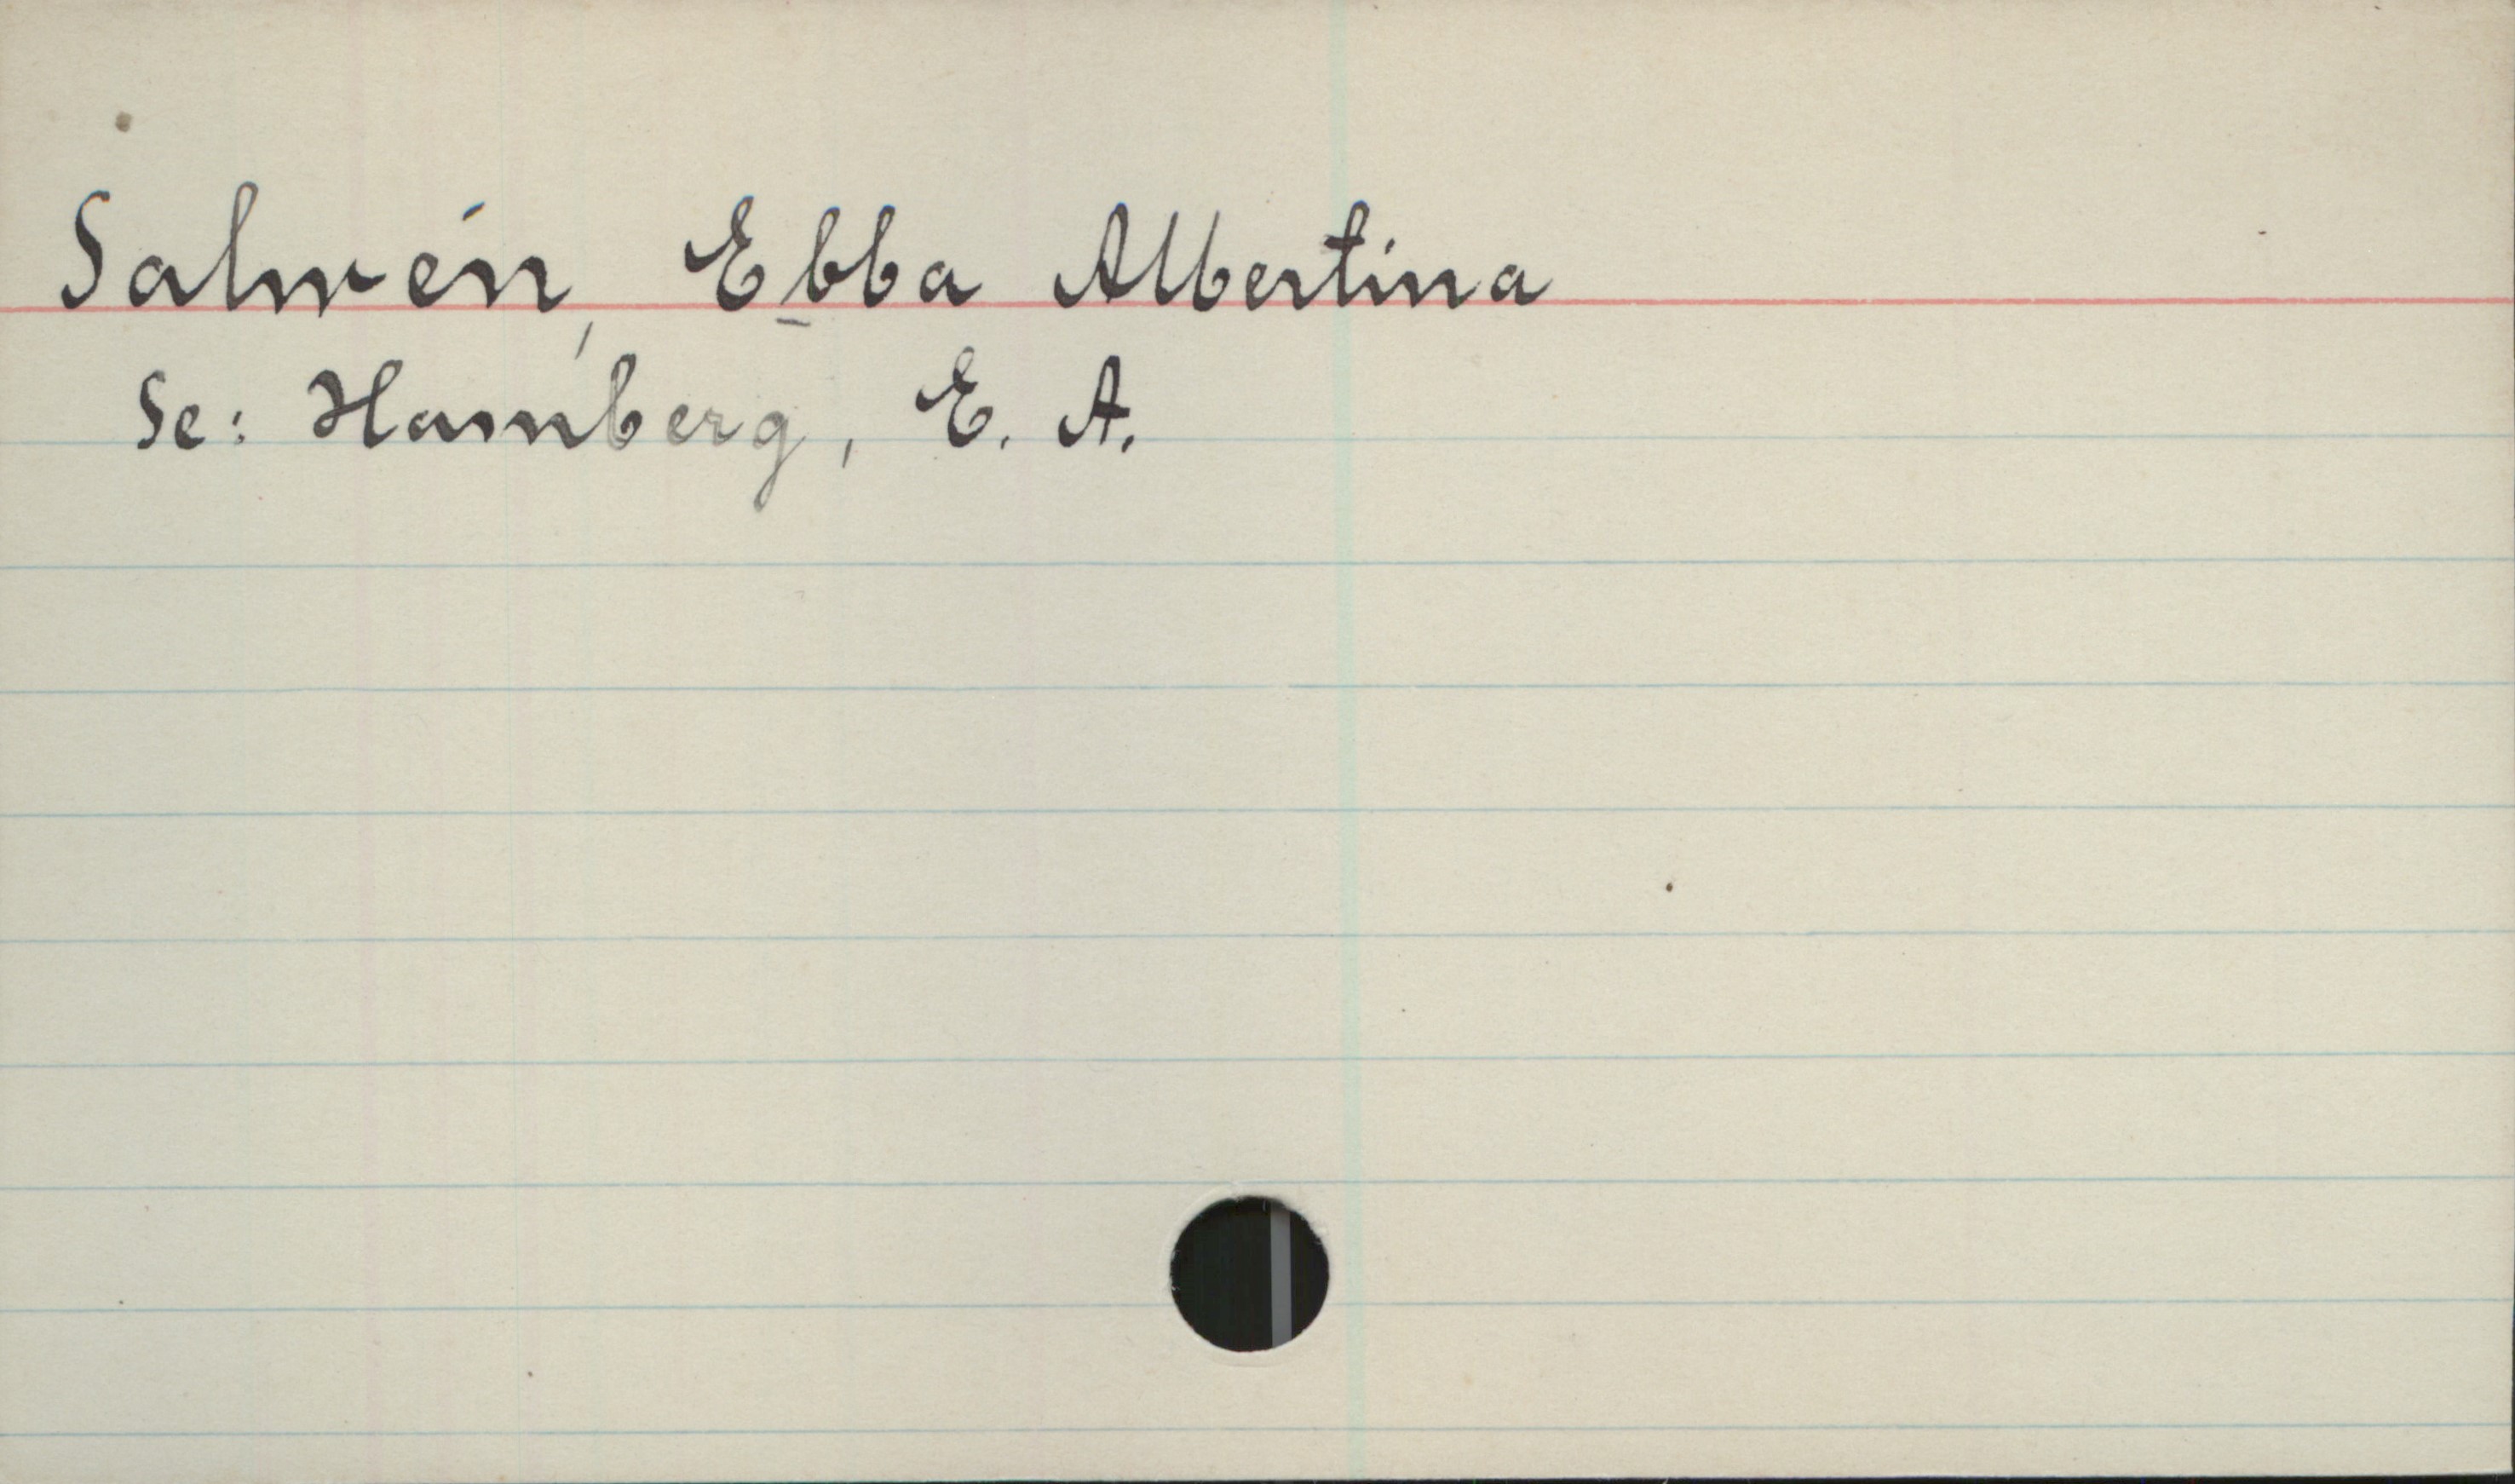 Salwén, Ebba Albertina
Se: Hamberg, E. A.